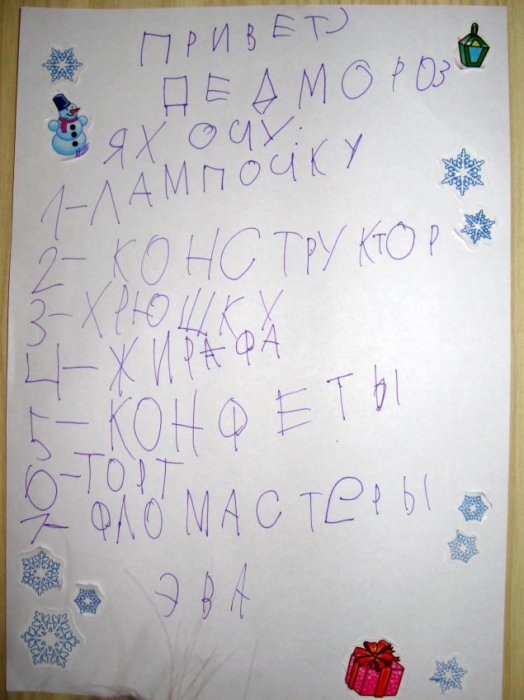 ПРИВЕТ
ДЕДМОРОЗ
ЯХ ОЧУ:
1-ЛАМПОЧКУ
2-КОНСТРУКТОР
3-ХРЮШКУ
4-ЖИРАФА
5-КОНФЕТЫ
6-ТОРТ
7-ФЛОМАСТЕРЫ
ЭВА